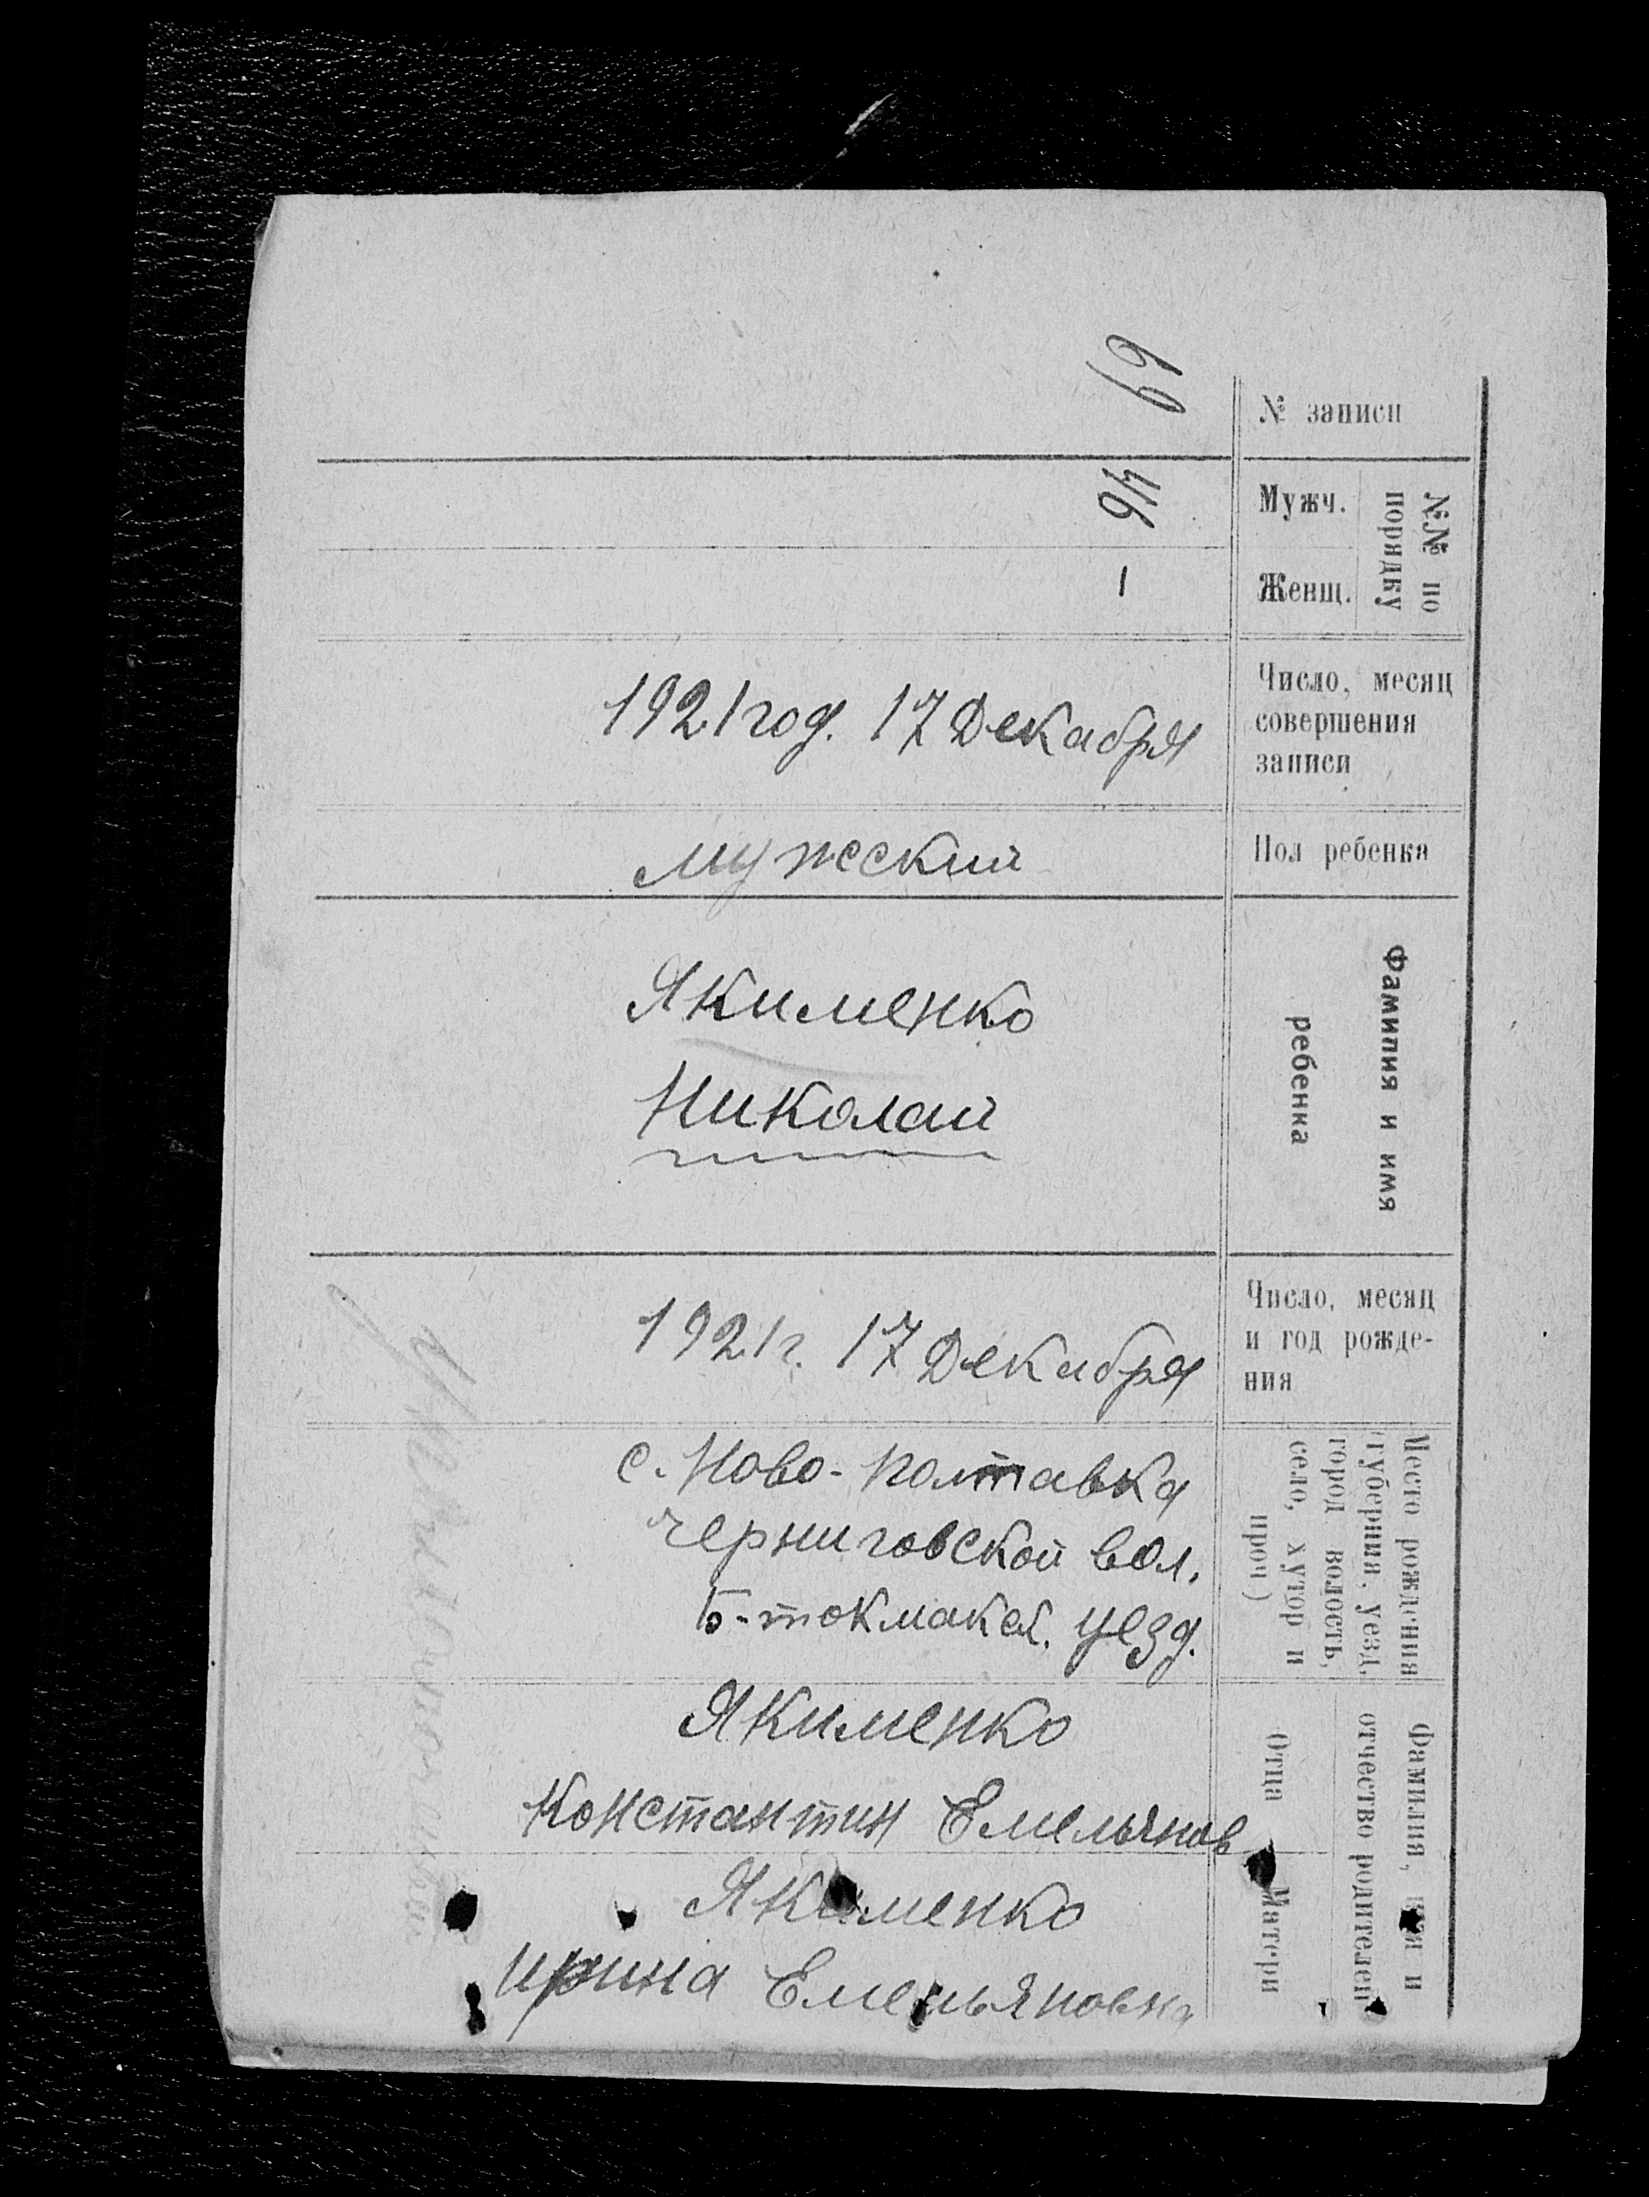 № записи
69
№№ по
порядку
Мужч.
46
Женщ.
-
Число, месяц
совершения
записи
1921 год. 17 Декабря
Пол ребенка
мужеский
Фамилия и имя
ребенка
Якименко
Николай
Число, месяц
и год рожде-
ния
1921 г. 17 Декабря
Место рождения
(губерния, уезд,
город волость,
село, хутор и
проч)
с. Ново-Полтавка
Черниговской вол.
Б-токмакск. уезд.
Фамилия, имя и
отчество родителей
Отца
Якименко
Константин Емельянов
Матери
Якименко
Ирина Емельяновна